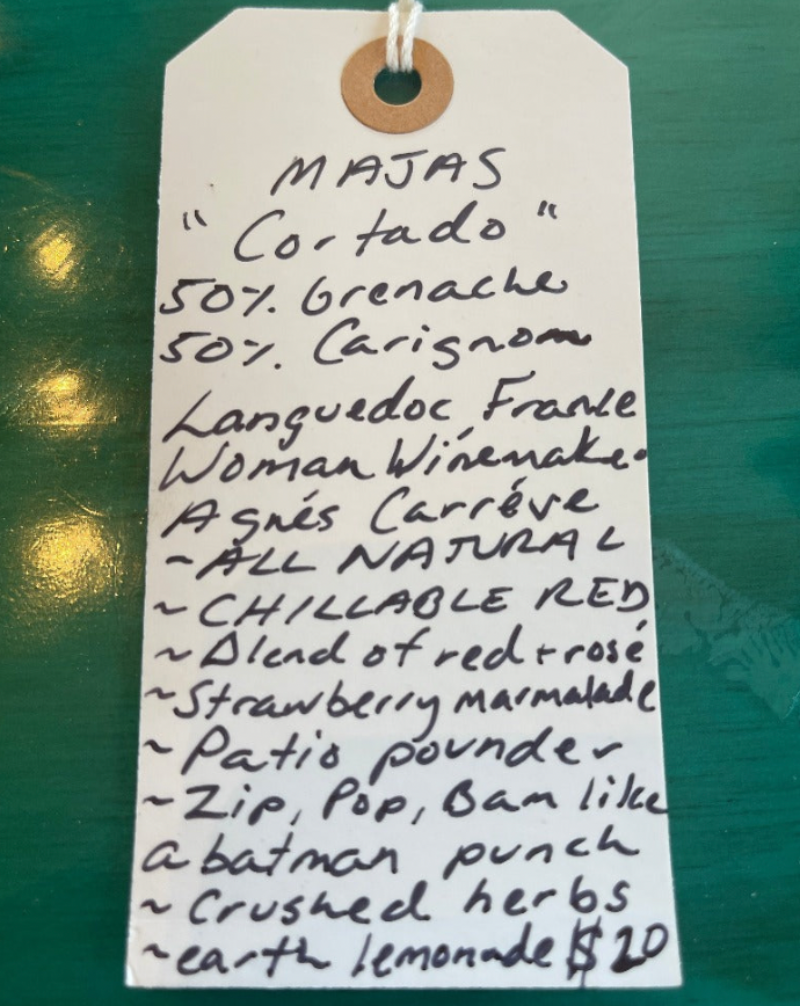 MAJAS
"Cortado"
50% Grenache
50% Carignom
Languedoc, France
Woman Winemaker
Agnés Carréve
~ALL NATURAL
~CHILLABLE RED
~Blend of red + rosé
~Strawberry marmalade
~Patio pounder
~Zip, Pop, Bam like
a batman punch
~Crushed herbs
~earth lemonade $20